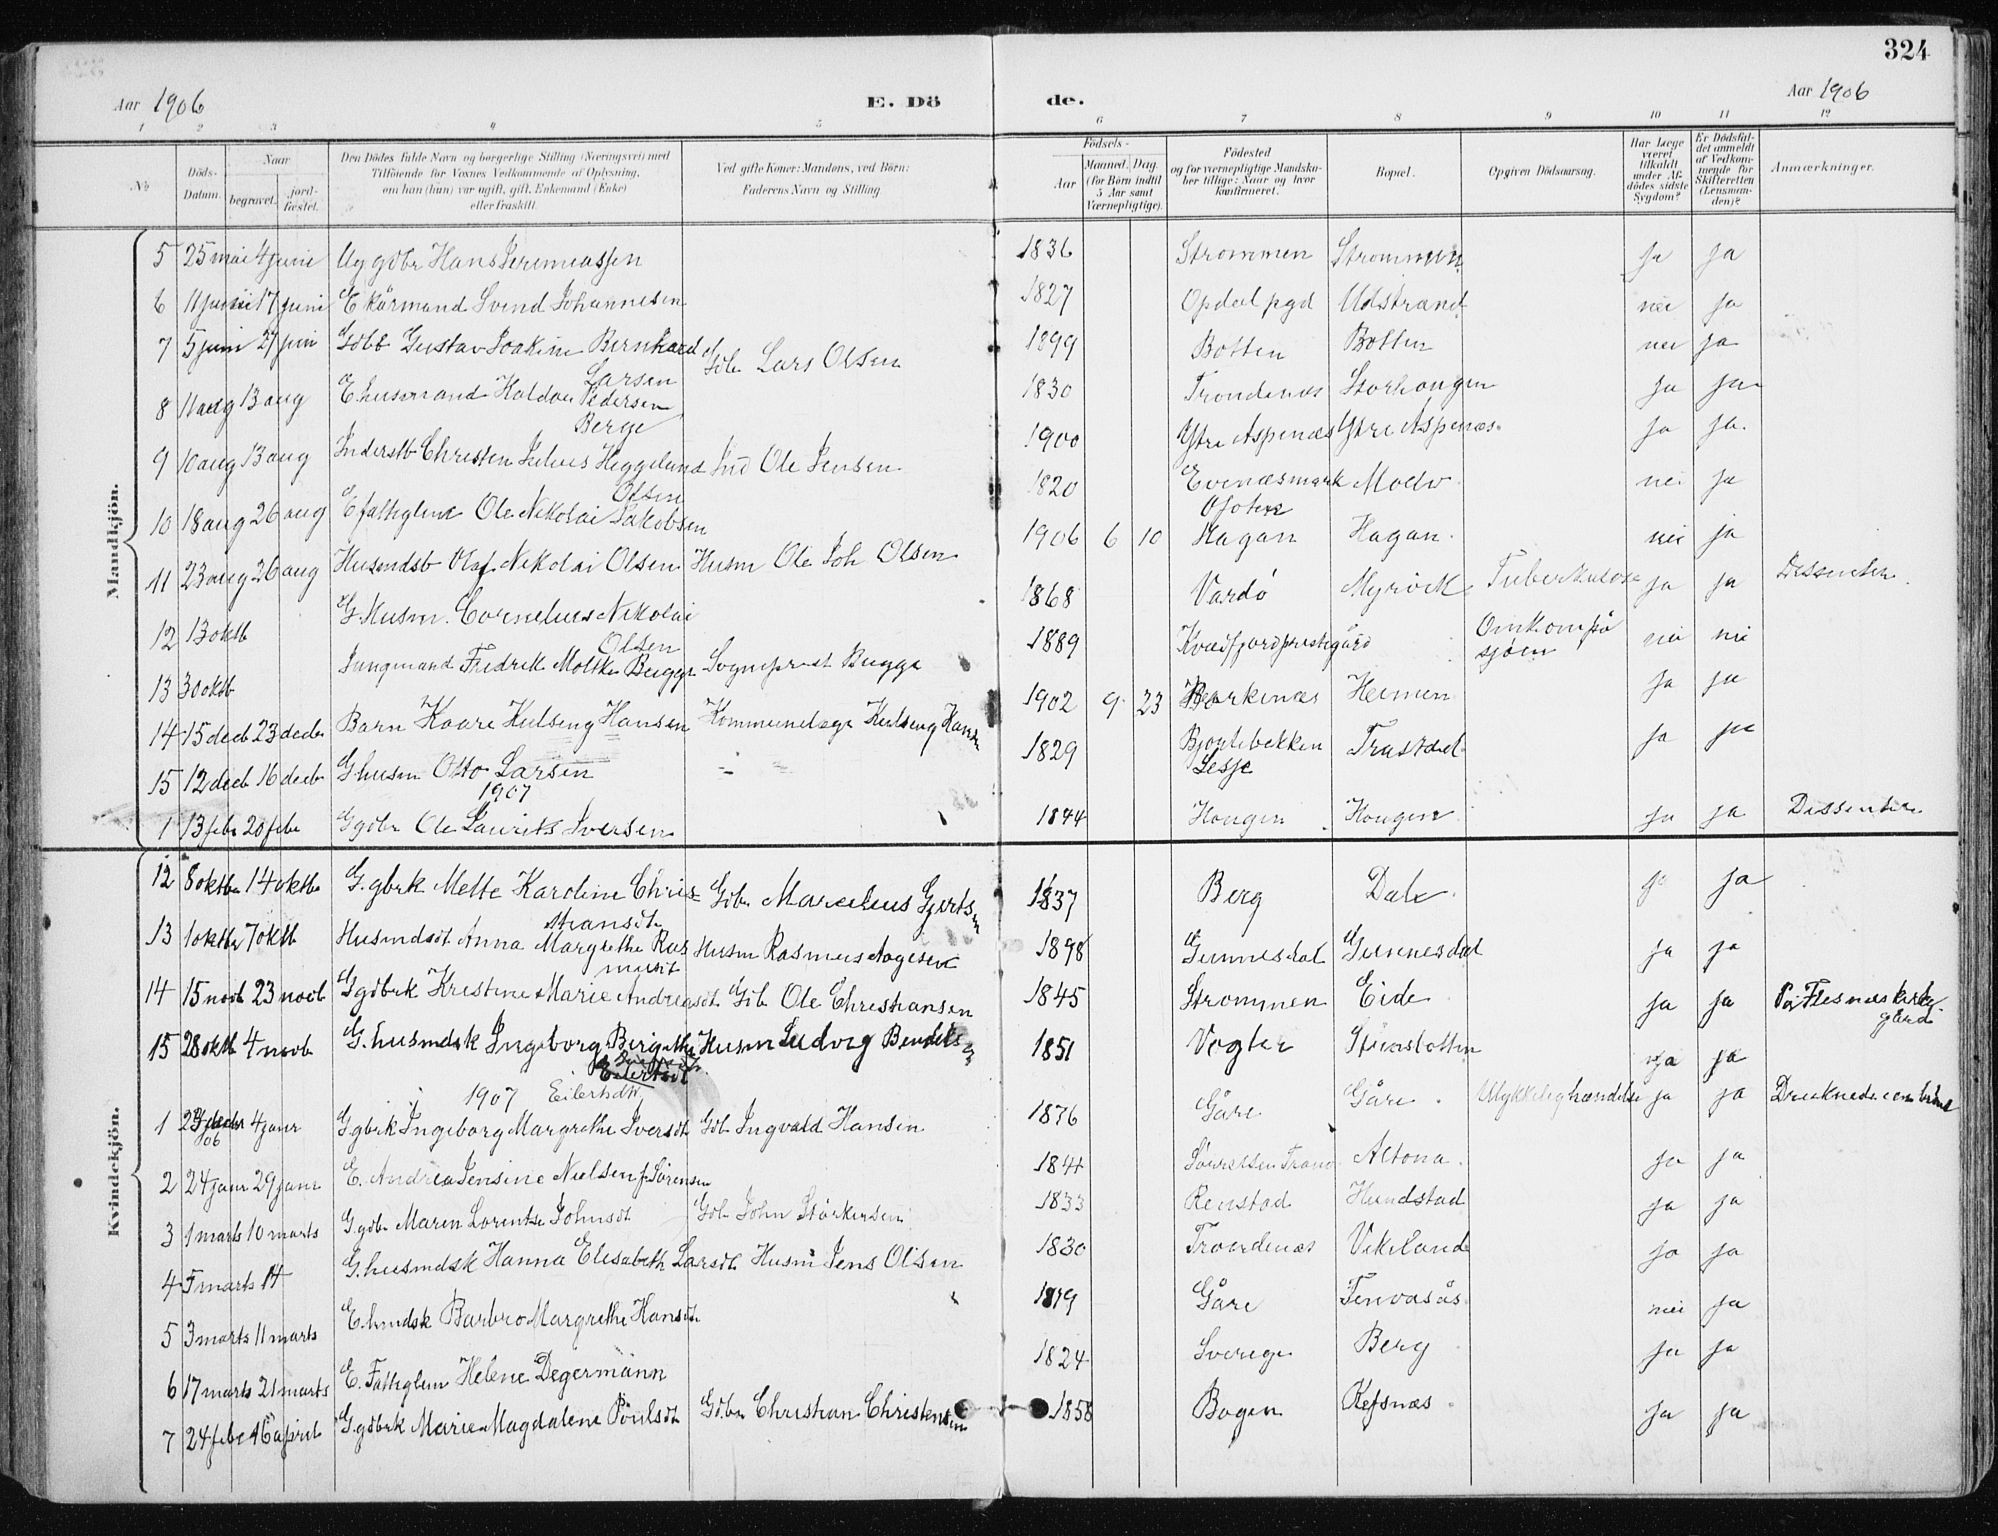 324
Aar 1906
E. Dö
de.
Aar 1906
1 2 3 4 5 6 7 8 9 10 11 12
No
Döds-Datum.
Naar
begravet.
jord-fæstet.
Den Dödes fulde Navn og borgerlige Stilling (Næringsvei) med
Tilföiende for Voxnes Vedkommende af Oplysning,
om han (hun) var ugift, gift, Enkemand (Enke)
eller fraskilt.
Ved gifte Koner: Mandens, ved Börn:
Faderens Navn og Stilling
Födsels-
Aar
Maaned. Dag.
(for Börn indtil
5 Aar samt
Værnepligtige).
Födested
og for værnepligtige Mandska-
ber tillige: Naar og hvor
konfirmeret.
Bopæl.
Opgiven Dödsaarsag.
Har Læge
været
tilkaldt
under Af-
dödes sidste
Sygdom?
Er Dödsfal-
det anmeldt
af Vedkom-
mende for
Skifteretten
(Lensman-
den)?
Anmærkninger.
Mandkjön.
5 25 mai 4 juni Ug gdbr Hans Jeremiassen 1836 Strommen Strommen ja ja
6 11 juni 17 juni E kårmand Svend Johannesen 1827 Opdal pgd Udstrand nei ja
7 5 juni 27 juni Gdbb Gustav Joakim Bernhard Larsen Gdbr Lars Olsen 1899 Botten Botten nei ja
8 11 aug 13 aug E husmand Haldor Pedersen Berge 1830 Trondenæs Storhaugen ja ja
9 10 aug 13 aug Inderstb Christen Julius Heggelund Olsen Ind Ole Jensen 1900 Ytre Aspenæs Ytre Aspenæs ja ja
10 18 aug 26 aug E fattiglem Ole Nikolai Jakobsen 1820 Evenæsmark Ofoten Molv nei ja
11 23 aug 26 aug Husmdsb Olaf Nikolai Olsen Husm Ole Joh Olsen 1906 6 10 Hagan Hagan nei ja
12 13 oktb G. Husm. Cornelius Nikolai Olsen 1868 Vardö Myrvik Tuberkulose ja ja Dissenter
13 30 oktb Jungmand Fredrik Moltke Bugge Sogneprest Bugge 1889 Kvædfjordprestegård Omkom på sjöen nei nei
14 15 decb 23 decbr Barn Kaare Hulseng Hansen Kommunelæge Hulseng Hansen 1902 9 23 Borkenæs Heimen ja ja
15 12 decb 16 decb G husm Otto Larsen 1829 Bjontebekken Lesje Trastdal ja ja
1907
1 13 febr 20 febr G gdbr Ole Laurits Iversen 1844 Hougen Hougen ja ja Dissenter
Kvindekjön.
12 8 oktbr 14 oktbr G. gbrk Mette Karoline Christiansdt Gdbr Marcelius Gjertsen 1837 Berg Dale ja ja
13 1 oktbr 7 oktb Husmdsdt Anna Margrethe Rasmusdt Husm Rasmus Aagesen 1898 Gunnesdal Gunnesdal ja ja
14 15 novb 23 novb G gdbrk Kristine Marie Andreasdt Gdb Ole Christiansen 1845 Strommen Eide ja ja På Flesnes kirkegård
15 28 oktb 4 novb G. husmdsk Ingeborg Bergithe Eilertsdt Husm Ludvig Bendiksen 1851 Vogter ja ja
1907 Eilertsdt
1 23 decbr 06 4 janr G gbrk Ingeborg Margrethe Iversdt Gdb Ingvald Hansen 1876 Gåre Gåre Ulykkelig hændelse ja ja Druknede i en brönd
2 24 janr 29 janr E. Andrea Jensine Nielsen f. Sörensen 1841 Altona ja ja
3 1 marts 10 marts G gdbr Maren Lorentse Johnsdt Gdb John Störkersen 1833 Renstad Hundstad ja ja
4 5 marts 14 G. husmdsk Hanna Elisabeth Larsdt Husm Jens Olsen 1830 Trondenæs Vikeland ja ja
5 3 marts 11 marts E. hmdsk Barbro Margrethe Hansdt 1819 Gåre Tenvasås nei ja
6 17 marts 21 marts E. Fattiglem Helene Degermann 1824 Sverige Berg ja ja
7 24 febr 16 april G. gdbrk Marie Magdalene Poulsdt Gdbr Christian Christensen 1858 Bogen Refsnæs ja ja